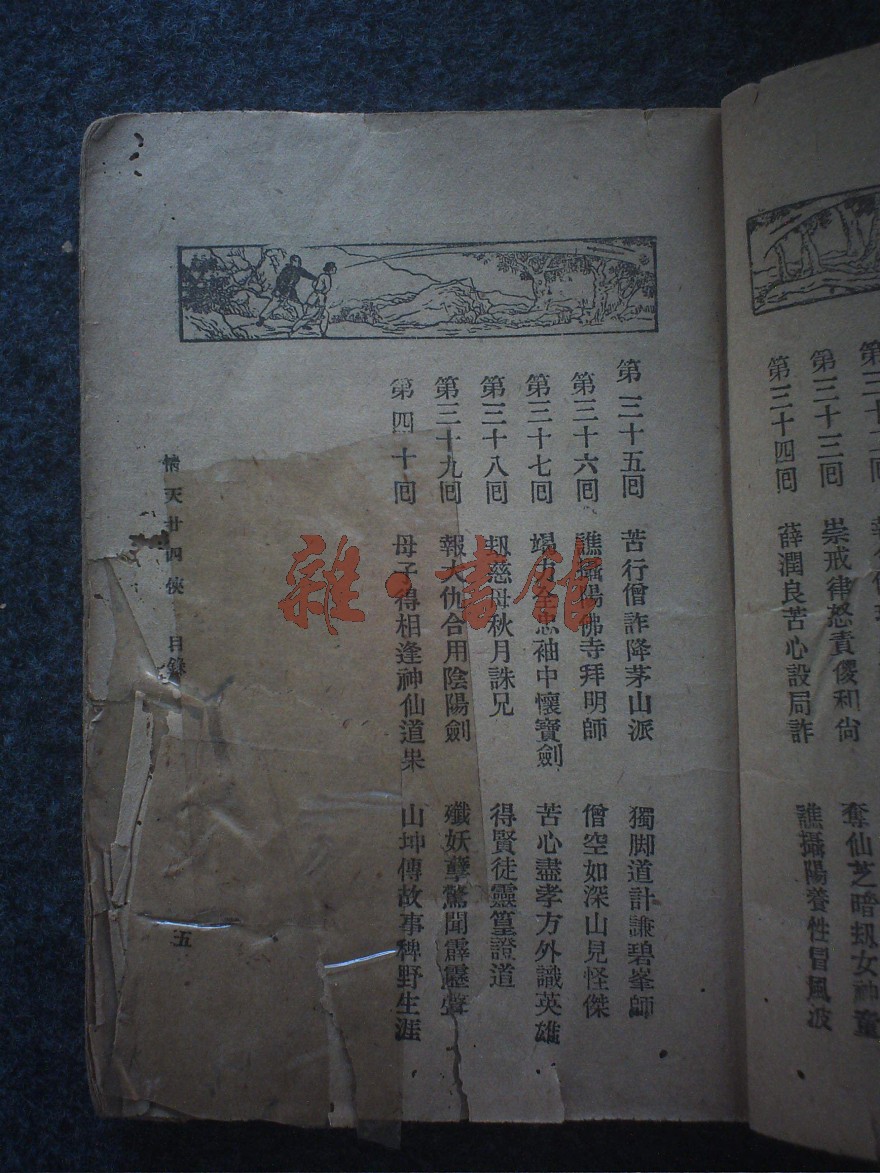 第三十二回
第三十三回 崇戒律怒責儍和尙
奪仙芝暗刼女神童
第三十四回 薛潤良苦心設局詐
譙攝陽養性冒風波
第三十五回 苦行僧詐降茅山派 獨脚道計謙碧峯師
第三十六回 譙攝陽佛寺拜明師 僧空如深山見怪傑
第三十七回 竭力全忠袖中懷寶劍 苦心盡孝方外識英雄
第三十八回 刼慈母秋月誅兄 得賢徒靈篁證道
第三十九回 報大仇合用陰陽劍 殲妖孽驚聞霹靂聲
第四十回 母子得相逢神仙道果 山坤傳故事稗野生涯
情天廿四俠 目錄 五
雜·書館